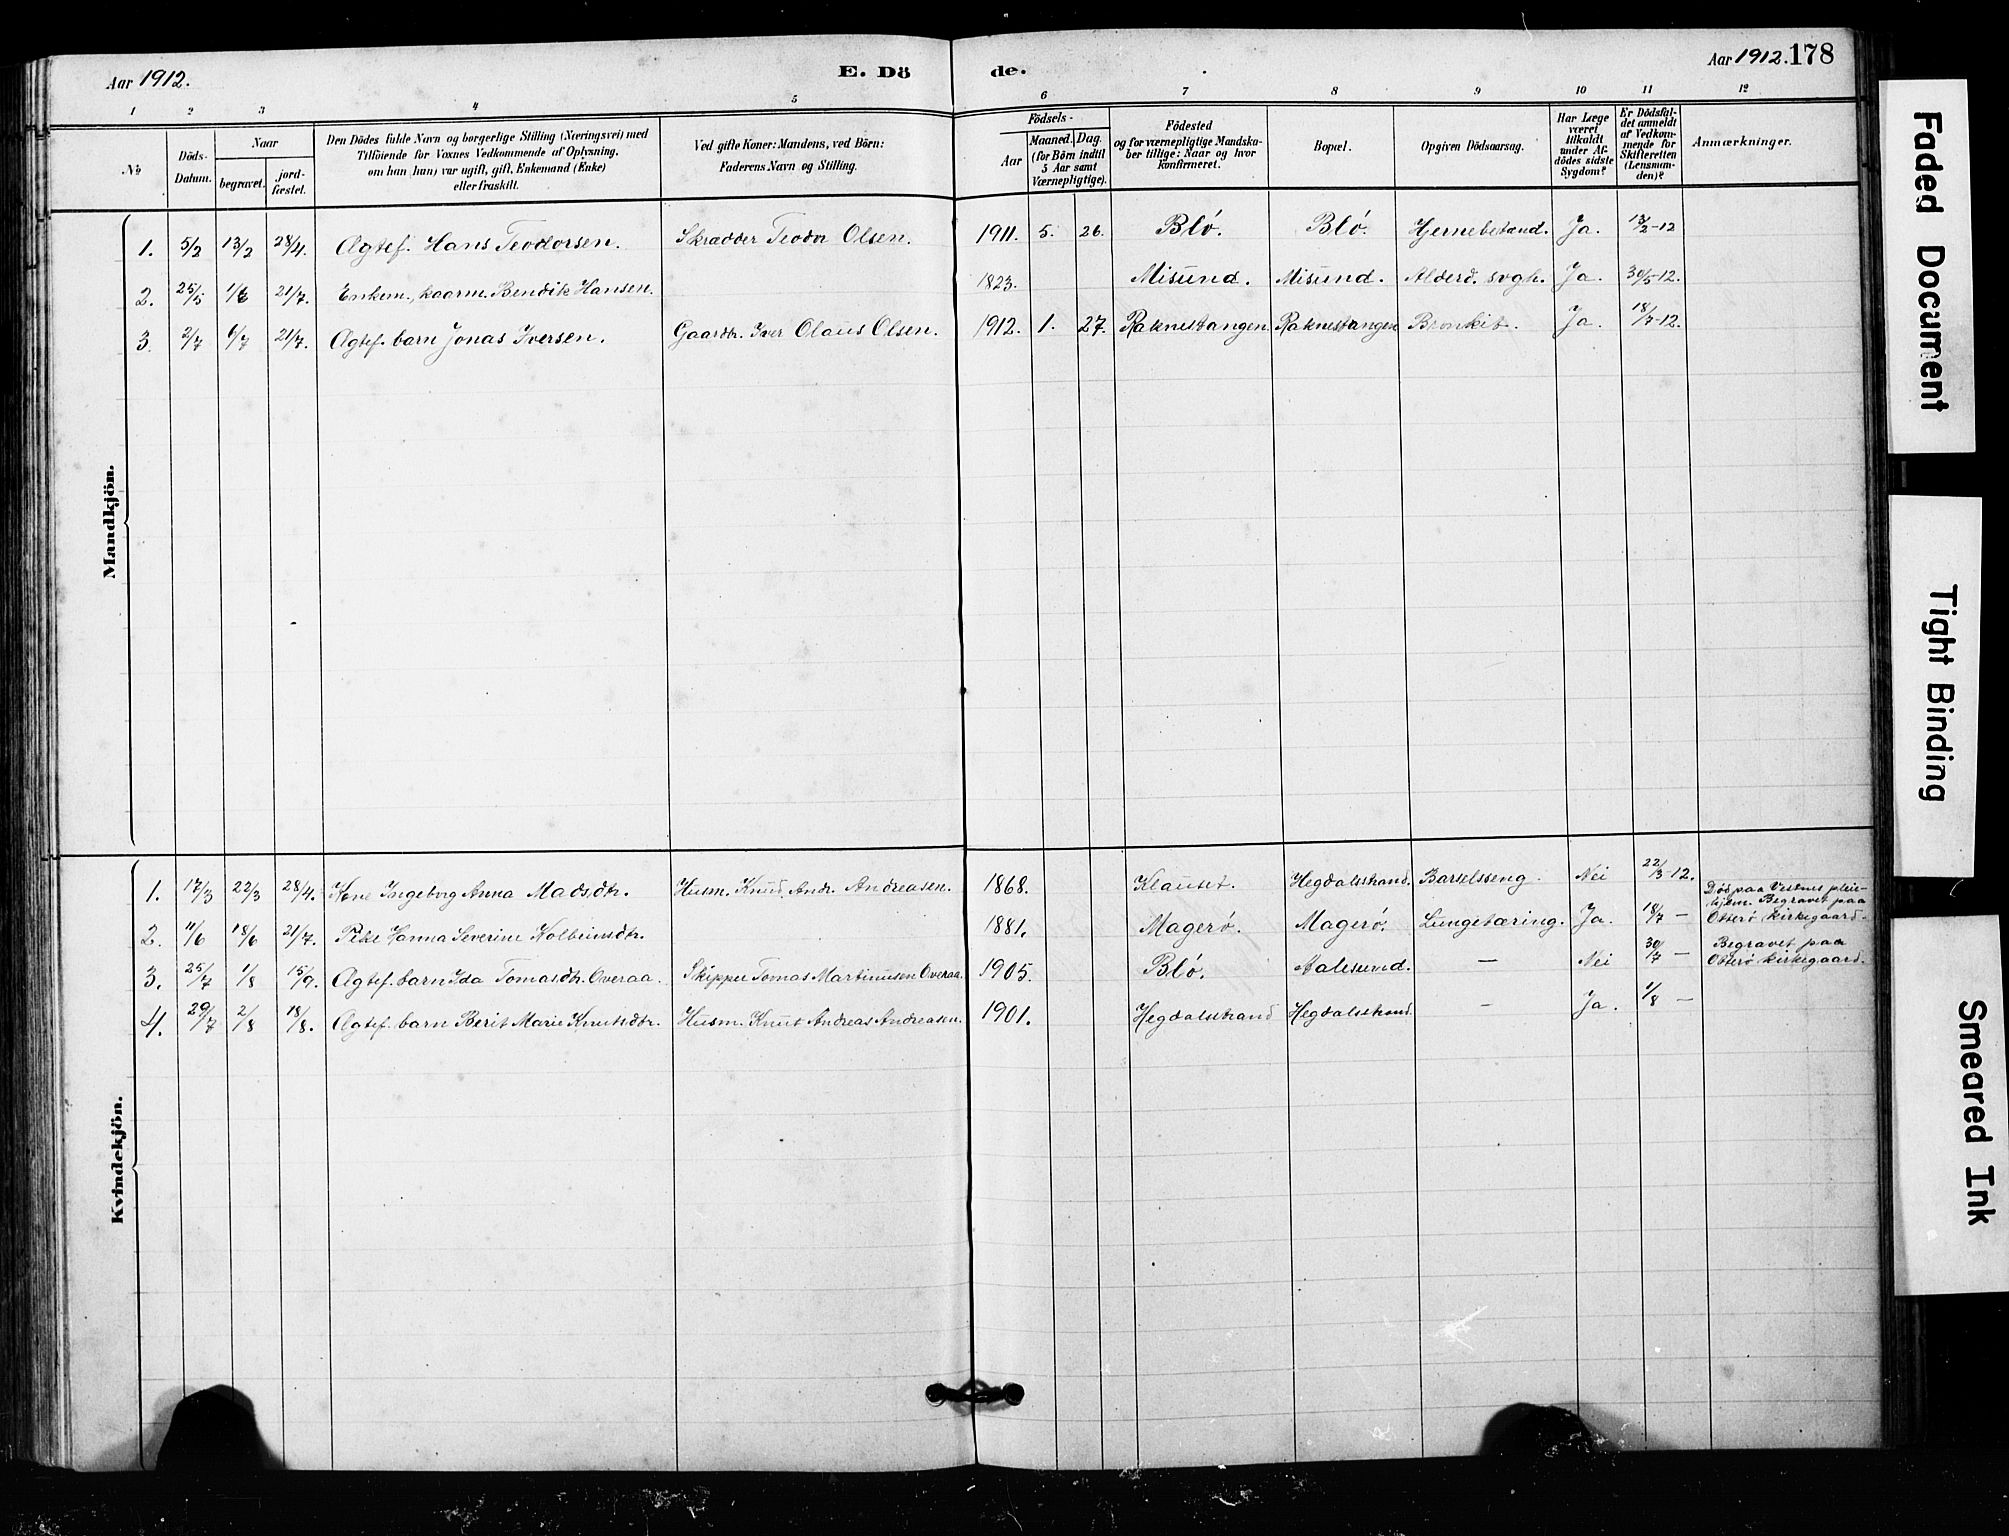 Aar 1912.
E. Dö
de.
Aar 1912. 178
1 2 3 4 5 6 7 8 9 10 11 12
No
Döds-Datum.
Naar
begravet.
jord-fæstet.
Den Dödes fulde Navn og borgerlige Stilling (Næringsvei) med
Tilföiende for Voxnes Vedkommende af Oplysning,
om han (hun) var ugift, gift, Enkemand (Enke)
eller fraskilt.
Ved gifte Koner: Mandens, ved Börn:
Faderens Navn og Stilling.
Födsels-
Aar
Maaned. Dag.
(for Börn indtil
5 Aar samt
Værnepligtige).
Födested
og for værnepligtige Mandska-
ber tillige: Naar og hvor
konfirmeret.
Bopæl.
Opgiven Dödsaarsag.
Har Læge
været
tilkaldt
under Af-
dödes sidste
Sygdom?
Er Dödsfal-
det anmeldt
af Vedkom-
mende for
Skifteretten
(Lensman-
den)?
Anmærkninger.
Mandkjön.
1. 5/2 13/2 28/4. Ægtef. Hans Teodorsen. Skrædder Teodor Olsen. 1911. 5. 26. Blø. Blø. Hjernebetænd. Ja. 13/2-12
2. 25/5 1/6 21/7. Enkem., kaarm. Bendik Hansen. 1823. Misund. Misund. Alderd. svgh. Ja. 30/5-12.
3. 2/7 6/7 21/7. Ægtef. barn Jonas Iversen. Gaardbr. Iver Olaus Olsen. 1912. 1. 27. Raknestangen Raknestangen Bronkit. Ja. 18/7-12.
Kvindekjön.
1. 17/3 22/3 28/4. Kone Ingeborg Anna Madsdtr. Husm. Knud Andr. Andreasen. 1868. Klauset. Hegdalsstrand. Barselsseng. Nei 22/3-12.
2. 11/6 18/6 21/7. Pike Hanna Severine Kolbeinsdtr. 1881. Magerø. Magerø. Lungetæring. Ja. 18/7 — Død paa Vestnes pleie-
hjem. Begravet paa
Otterø kirkegaard.
3. 25/7 1/8 15/9. Ægtef. barn Ida Tomasdtr. Overaa. Skipper Tomas Martinusen Overaa. 1905. Blø. Aalesund. — Nei 30/7 — Begravet paa
Otterø kirkegaard.
4. 29/7 2/8 18/8. Ægtef. barn Berit Marie Knutsdtr. Husm. Knut Andreas Andreasen. 1901. Hegdalsstrand Hegdalsstrand. — Ja. 1/8 —
Faded Document
Tight Binding
Smeared Ink